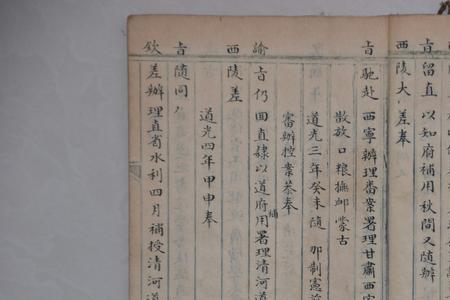 旨留直以知府補用秋間又随辦
西陵大差奉
旨馳赴西寧辦理番案署理甘肅西寧
散放口糧撫卹蒙古
道光三年癸未随 那制憲前
審辦控案恭奉
諭旨仍回直隸以道府用補署理清河道
西陵差
道光四年甲申奉
旨隨同
欽差辦理直省水利四月補授清河道